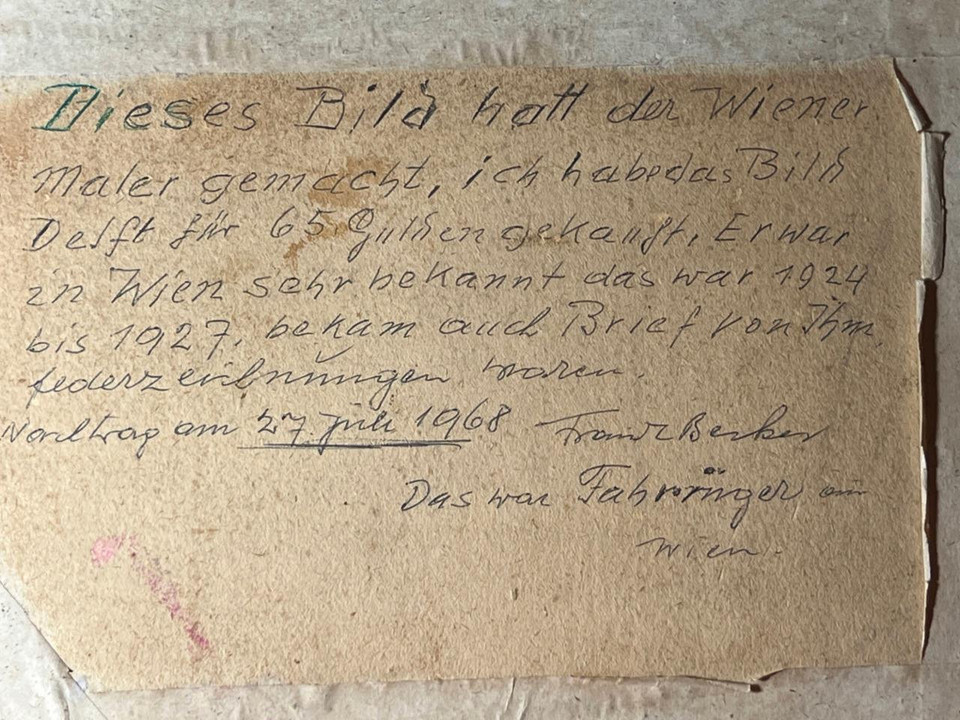 Dieses Bild hatt der Wiener
Maler gemacht, ich habe das Bild
Delft für 65 Gulden gekauft. Er war
in Wien sehr bekannt das war 1924
bis 1927. bekam auch Brief von Ihm.
federzeichnungen waren.
am 27. Juli 1968 Franz Becker
Das war Fahringer
Wien.